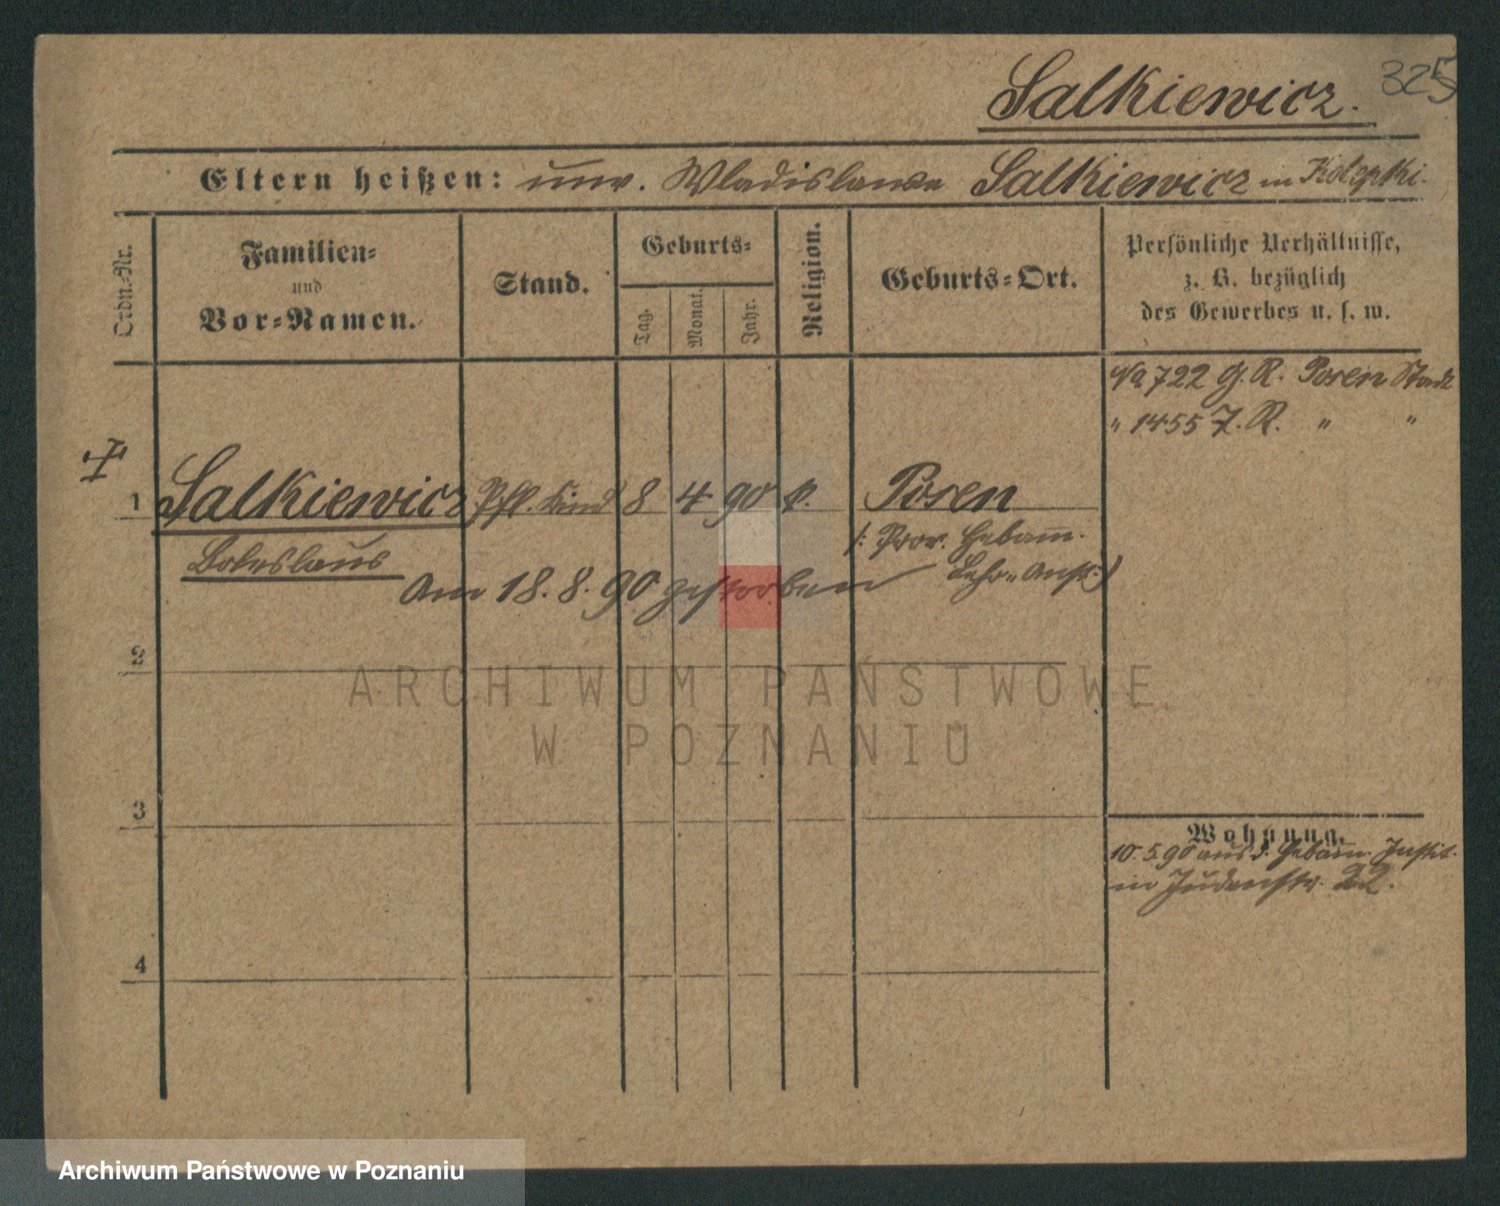 325
Salkiewicz.
Eltern heißen: unv. Wladislawa Salkiewicz in
Ordn.-Nr.
Familien-
und
Vor-Namen.
Stand.
Geburts-
Tag.
Monat.
Jahr.
Religion.
Geburts-Ort.
Persönliche Verhältnisse,
z. B. bezüglich
des Gewerbes u. s. w.
No 722 G. R. Posen Stadt
" 1455 Z. R. " "
1 Salkiewicz Pfl. Kind 8 4 90 k. Posen
Boleslaus
(: Prov. Hebam.
Lehr-Anst:)
Am 18. 8. 90 gestorben
2
3
4
Wohnung.
10. 5. 90 aus d. Hebam. Instit.
in Judenstr. 22.
ARCHIWUM PAŃSTWOWE
W POZNANIU
Archiwum Państwowe w Poznaniu